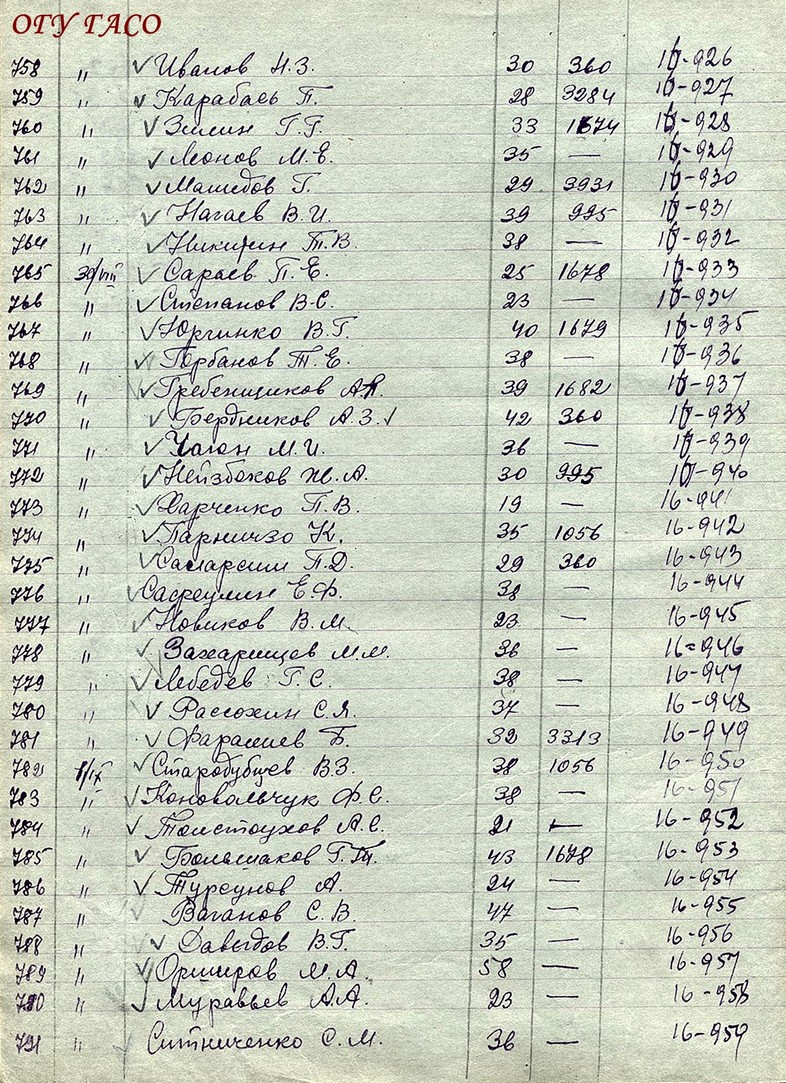 ОГУ ГАСО
758 " ✓ Иванов Н.З. 30 360 16-926
759 " ✓ Карабаев П. 28 3284 16-927
760 " ✓ Зимин Г.Г. 33 1674 16-928
761 " ✓ Леонов М.Е. 35 — 16-929
762 " ✓ Машедов Г. 29 3931 16-930
763 " ✓ Нагаев В.И. 39 995 16-931
764 " ✓ Никитин Т.В. 38 — 16-932
765 30/VIII ✓ Сараев П.Е. 25 1678 16-933
766 " ✓ Степанов В.С. 23 — 16-934
767 " ✓ Юргинко В.Г. 40 1679 16-935
768 " ✓ Горбанов Т.Е. 38 — 16-936
769 " ✓ Гребенщиков А.П. 39 1682 16-937
770 " ✓ Бердников А.З. ✓ 42 360 16-938
771 " ✓ Чагон М.И. 36 — 16-939
772 " ✓ Нейзбеков Ж.А. 30 995 16-940
773 " ✓ Харченко П.В. 19 — 16-941
774 " ✓ Парничзо К. 35 1056 16-942
775 " ✓ Самарсин П.Д. 29 360 16-943
776 " ✓ Сафеулин Е.Ф. 38 — 16-944
777 " ✓ Новиков В.М. 23 — 16-945
778 " ✓ Захарищев М.М. 36 — 16-946
779 " ✓ Лебедев Г.С. 38 — 16-947
780 " ✓ Рассохин С.Я. 37 — 16-948
781 " ✓ Фарашиев Б. 32 3313 16-949
782 1/IX ✓ Стародубцев В.З. 38 1056 16-950
783 " ✓ Коновальчук Ф.С. 38 — 16-951
784 " ✓ Толстоухов А.С. 21 — 16-952
785 " ✓ Большаков Г.Т. 43 1678 16-953
786 " ✓ Турсунов А. 24 — 16-954
787 " ✓ Ваганов С.В. 47 — 16-955
788 " ✓ Давыдов В.Г. 35 — 16-956
789 " ✓ Орширов М.А. 58 — 16-957
790 " ✓ Муравьев А.А. 23 — 16-958
791 " ✓ Ситниченко С.М. 36 — 16-959